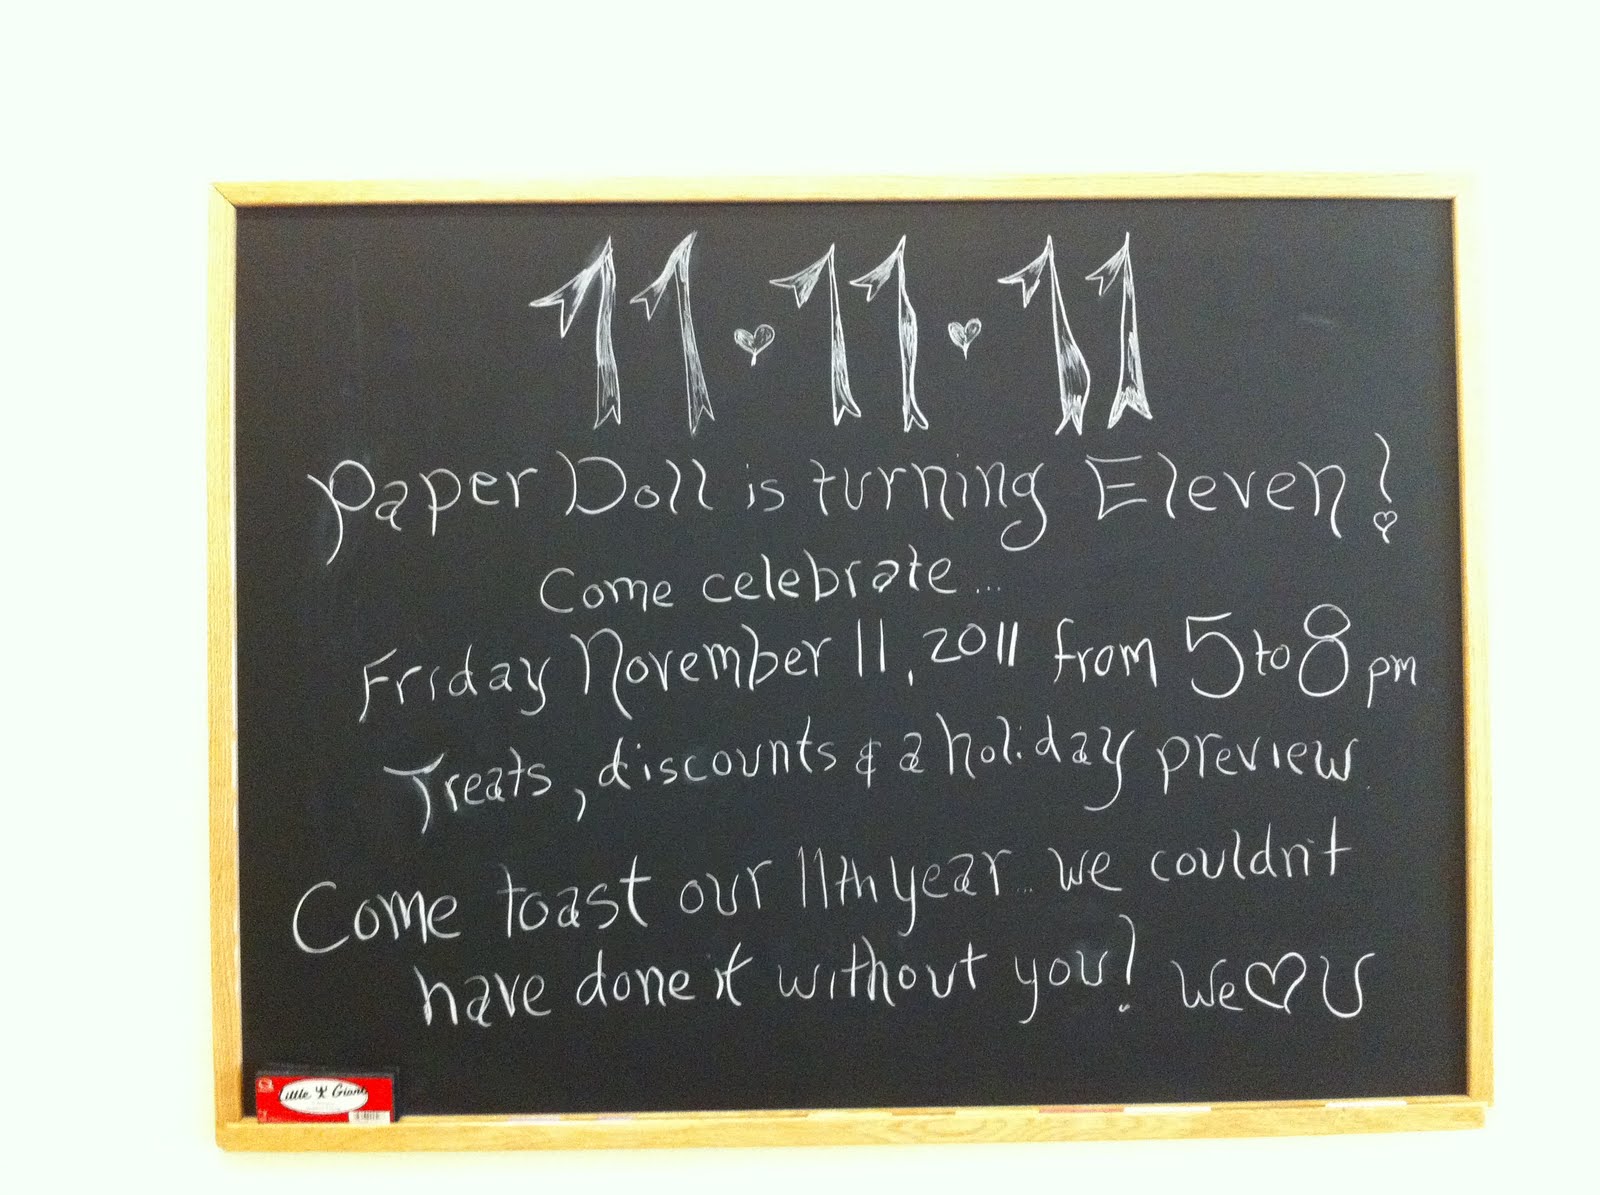 11 ♥ 11 ♥ 11
Paper Doll is turning Eleven!
Come celebrate...
Friday November 11, 2011 from 5 to 8 pm
Treats, discounts & a holiday preview.
Come toast our 11th year... we couldn't
have done it without you! We ♥ U
Little Giant